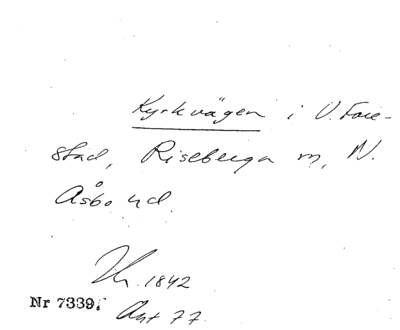 Kyrkvägen i V. Fare-
stad, Riseberga sn, N.
Åsbo hd.
1842
Nr 7339. Akt 77.